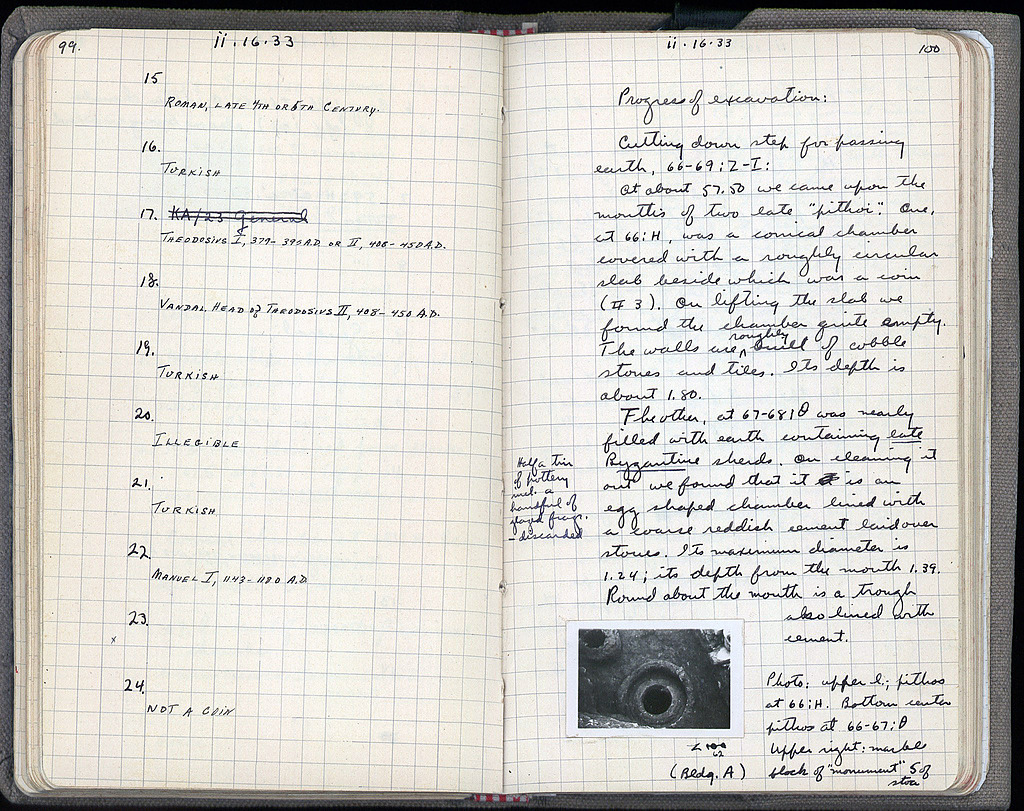 99.
ii.16.33
15
ROMAN, LATE 4TH OR 5TH CENTURY.
16.
TURKISH
17. KA/23 General
THEODOSIUS I, 379-395 A.D. OR II, 408-450 A.D.
18.
VANDAL, HEAD OF THEODOSIUS II, 408-450 A.D.
19.
TURKISH
20.
ILLEGIBLE
21.
TURKISH
22
MANUEL I, 1143-1180 A.D
23.
x
24.
NOT A COIN
ii.16.33
100
Progress of excavation:
Cutting down step for passing
earth, 66-69; Z-I:
At about 57.50 we came upon the
mouths of two late "pithoi". One,
at 66:H, was a conical chamber
covered with a roughly circular
slab beside which was a coin
(#3). On lifting the slab we
found the chamber quite empty.
roughly
The walls are built of cobble
stones and tiles. Its depth is
about 1.80.
The other, at 67-68/Θ was nearly
filled with earth containing late
Byzantine sherds. On cleaning it
out we found that it is an
egg shaped chamber lined with
a coarse reddish cement laid over
stones. Its maximum diameter is
1.24; its depth from the mouth 1.39.
Round about the mouth is a trough
also lined with
cement.
Half a tin
of pottery
incl. a
handful of
glazed frags.
- discarded
Photo: upper l.; pithos
at 66:H. Bottom center
pithos at 66-67:Θ
Upper right: marble
block of "monument" S of
stoa
62
(Bldg. A)